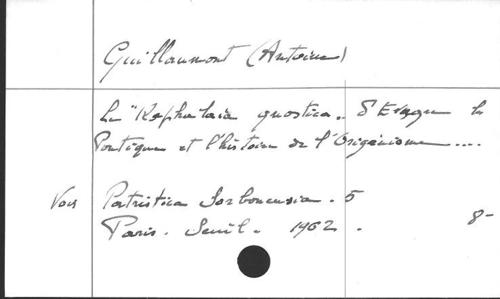 Guillaumont (Antoine)
Les "Kephalaia gnostica. d'Evagre le
Pontique et l'histoire de l'Origénisme ....
Voir Patristica Sorbonensia. 5
Paris. Seuil. 1962. 8-